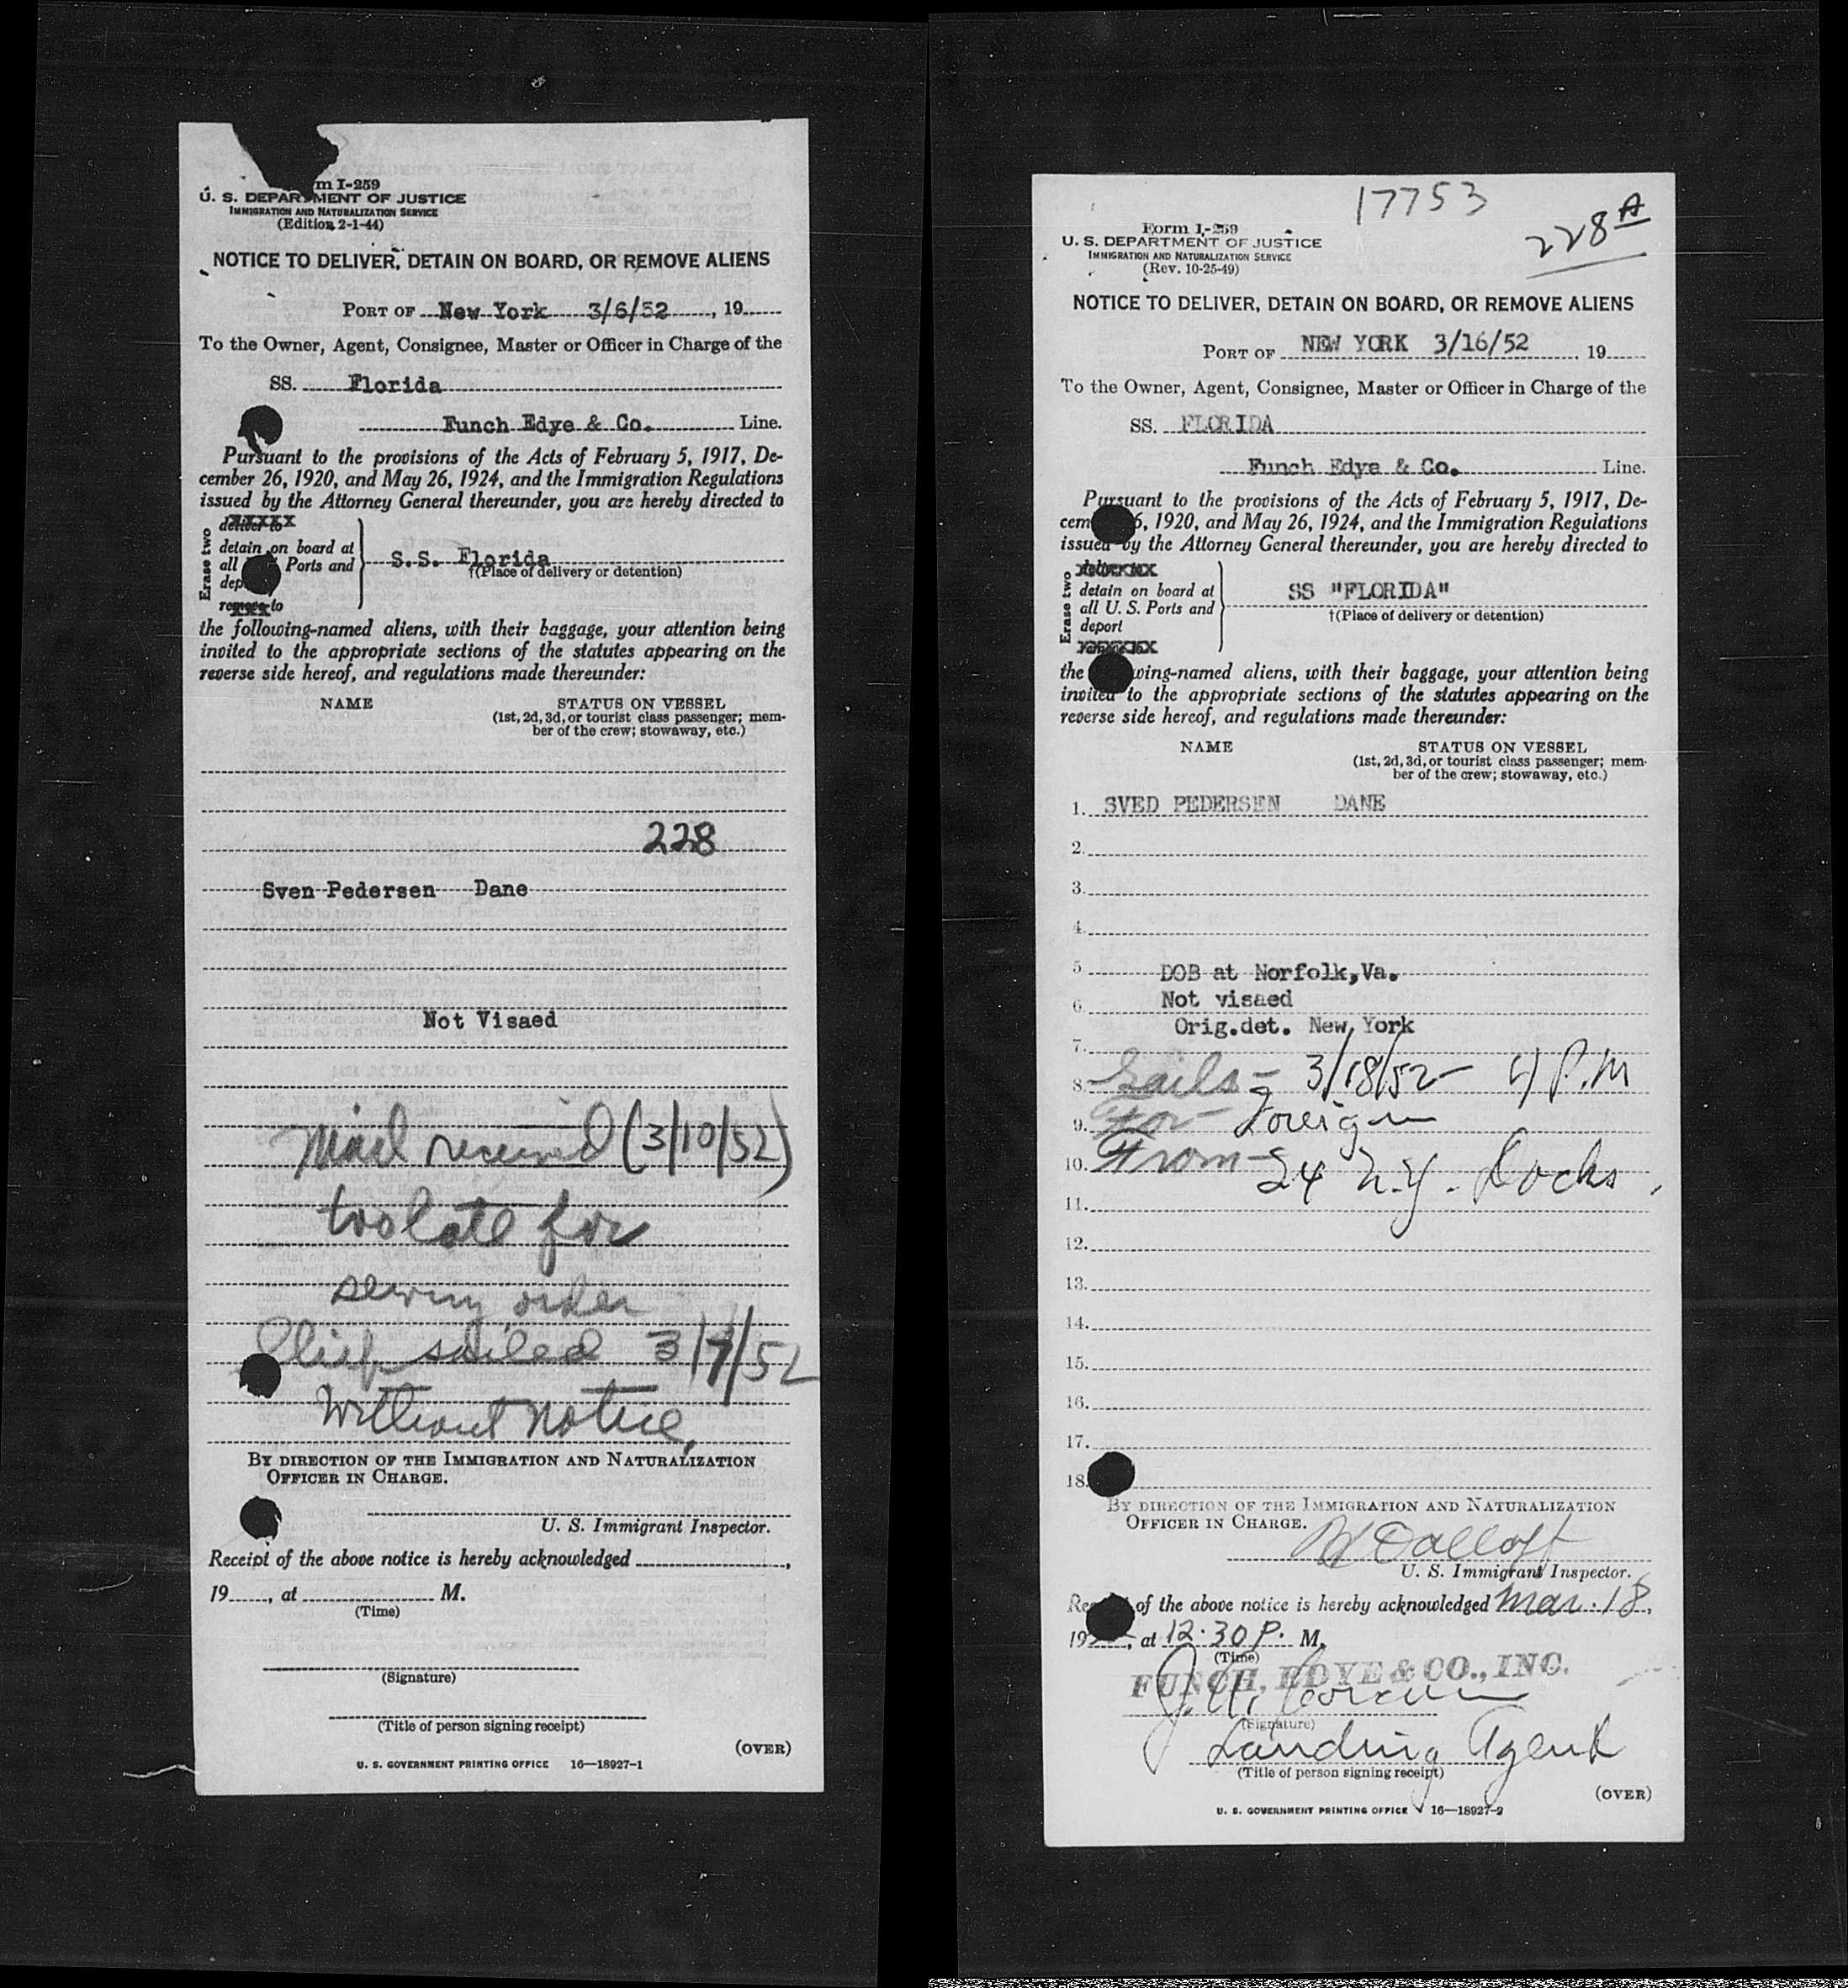 m I-259
U. S. DEPARTMENT OF JUSTICE
IMMIGRATION AND NATURALIZATION SERVICE
(Edition 2-1-44)
NOTICE TO DELIVER, DETAIN ON BOARD, OR REMOVE ALIENS
PORT OF New York 3/6/52, 19
To the Owner, Agent, Consignee, Master or Officer in Charge of the
SS. Florida
Funch Edye & Co. Line.
Pursuant to the provisions of the Acts of February 5, 1917, De-
cember 26, 1920, and May 26, 1924, and the Immigration Regulations
issued by the Attorney General thereunder, you are hereby directed to
Erase two
deliver to
detain on board at
all Ports and
dep
remove to
S.S. Florida
†(Place of delivery or detention)
the following-named aliens, with their baggage, your attention being
invited to the appropriate sections of the statutes appearing on the
reverse side hereof, and regulations made thereunder:
NAME STATUS ON VESSEL
(1st, 2d, 3d, or tourist class passenger; mem-
ber of the crew; stowaway, etc.)
228
Sven Pedersen Dane
Not Visaed
Mail received (3/10/52)
too late for
serving order
Ship sailed 3/7/52
Without notice,
BY DIRECTION OF THE IMMIGRATION AND NATURALIZATION
OFFICER IN CHARGE.
U. S. Immigrant Inspector.
Receipt of the above notice is hereby acknowledged ,
19 , at M.
(Time)
(Signature)
(Title of person signing receipt)
(OVER)
U. S. GOVERNMENT PRINTING OFFICE 16—18927-1
17753
228 A
Form I-259
U. S. DEPARTMENT OF JUSTICE
IMMIGRATION AND NATURALIZATION SERVICE
(Rev. 10-25-49)
NOTICE TO DELIVER, DETAIN ON BOARD, OR REMOVE ALIENS
PORT OF NEW YORK 3/16/52, 19
To the Owner, Agent, Consignee, Master or Officer in Charge of the
SS. FLORIDA
Funch Edye & Co. Line.
Pursuant to the provisions of the Acts of February 5, 1917, De-
cem 6, 1920, and May 26, 1924, and the Immigration Regulations
issued by the Attorney General thereunder, you are hereby directed to
Erase two
detain on board at
all U. S. Ports and
deport
SS "FLORIDA"
†(Place of delivery or detention)
the wing-named aliens, with their baggage, your attention being
invited to the appropriate sections of the statutes appearing on the
reverse side hereof, and regulations made thereunder:
NAME STATUS ON VESSEL
(1st, 2d, 3d, or tourist class passenger; mem-
ber of the crew; stowaway, etc.)
1. SVED PEDERSEN DANE
2.
3.
4.
5 DOB at Norfolk,Va.
6. Not visaed
Orig.det. New York
7.
8. Sails - 3/18/52 - 4 P.M
9. For Foreign
10. From - 24 N.Y. Docks.
11.
12.
13.
14.
15.
16.
17.
18.
BY DIRECTION OF THE IMMIGRATION AND NATURALIZATION
OFFICER IN CHARGE.
U. S. Immigrant Inspector.
Re of the above notice is hereby acknowledged Mar. 18,
19 , at 12:30 P. M.
(Time)
FUNCH, EDYE & CO., INC.
(Signature)
Landing Agent
(Title of person signing receipt)
(OVER)
U. S. GOVERNMENT PRINTING OFFICE 16—18927-2